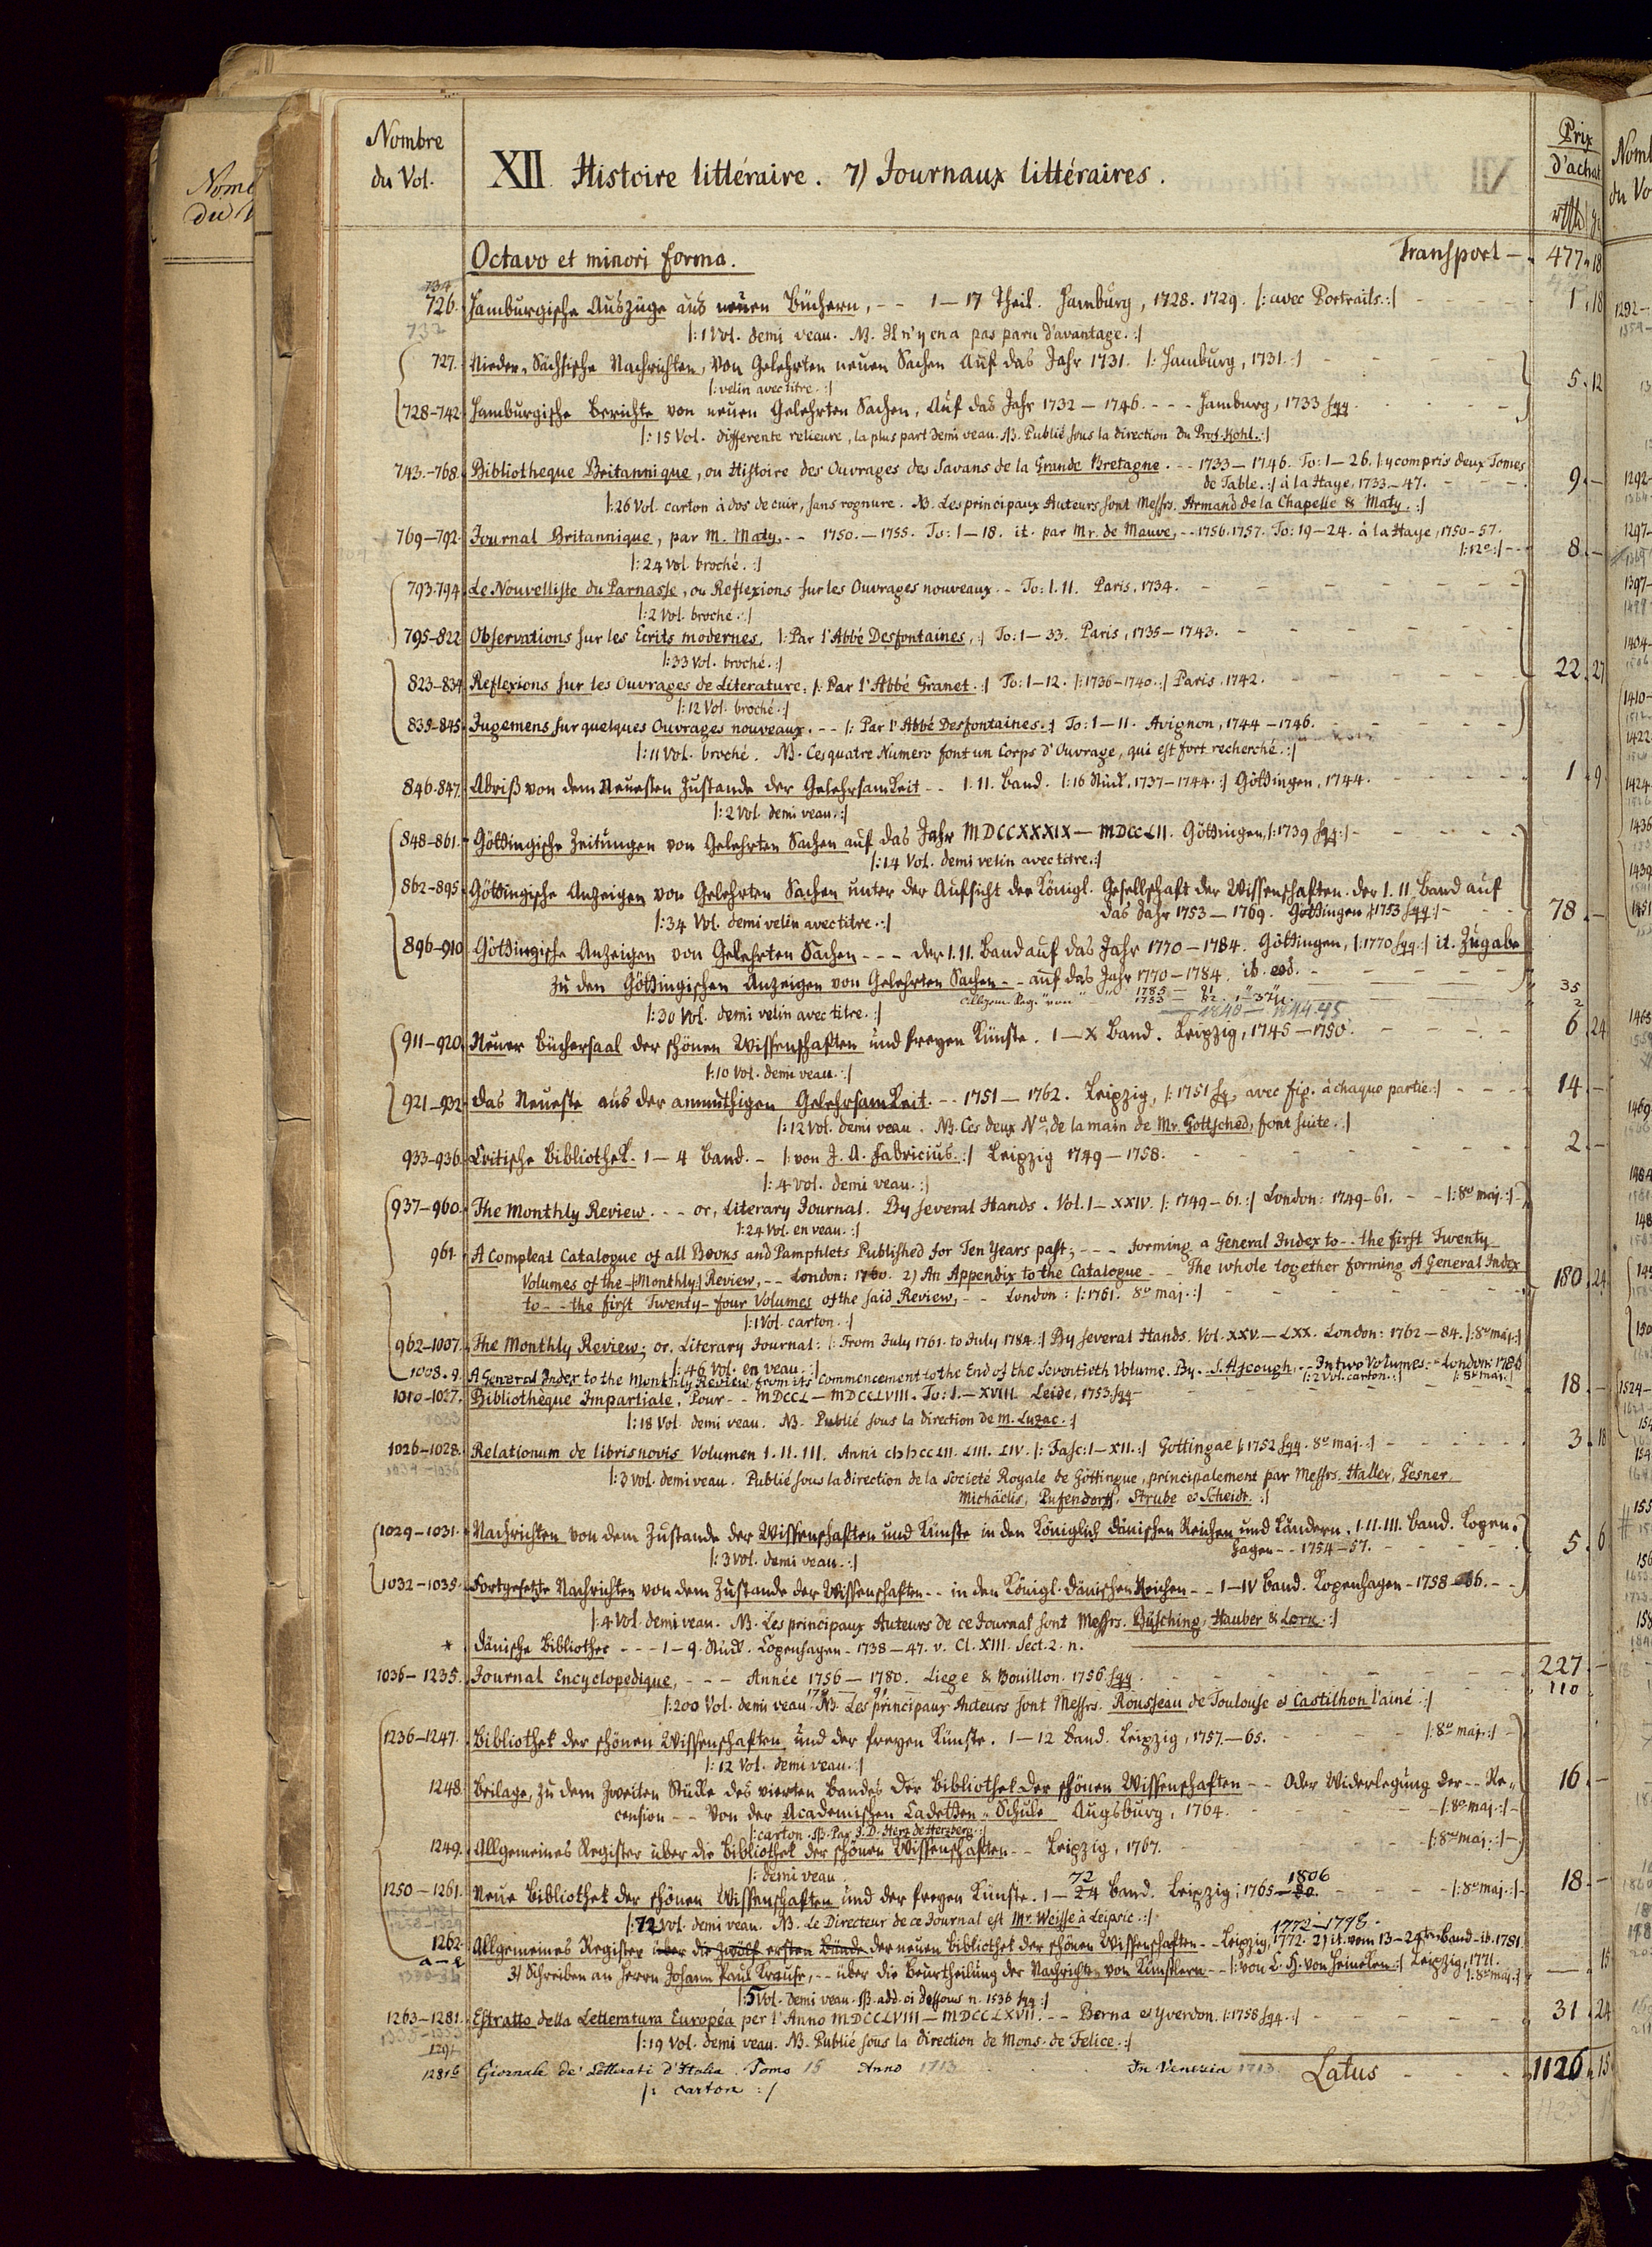 Nombre
du Vol.
XII Histoire littéraire. 7) Journaux littéraires.
Prix
d'achat
Octavo et minori forma. Transport — 477. 18
734
726. Hamburgische Auszüge aus neuen Büchern, - - 1 — 17 Theil. Hamburg, 1728. 1729. |: avec Portraits. :| 1. 18
732
|: 1 Vol. demi veau. NB. Il n'y en a pas paru d'avantage. :|
727. Nieder-Sächsische Nachrichten, von Gelehrten neuen Sachen Auf das Jahr 1731. |: Hamburg, 1731. :|
|: velin avec titre. :| 5. 12
728-742. Hamburgische Berichte von neuen Gelehrten Sachen, Auf das Jahr 1732 — 1746. - - - Hamburg, 1733 sqq.
|: 15 Vol. differente relieure, la plus part demi veau. NB. Publié sous la direction du Prof. Kohl. :|
743.-768. Bibliotheque Britannique, ou Histoire des Ouvrages des Savans de la Grande Bretagne. - - 1733 — 1746. To: 1 — 26. |: y compris deux Tomes
de Table. :| à la Haye, 1733 — 47. 9. —
|: 26 Vol. carton à dos de cuir, sans rognure. NB. Les principaux Auteurs sont Messrs. Armand de la Chapelle & Maty. :|
769-792. Journal Britannique, par M. Maty, - - 1750. — 1755. To: 1 — 18. it. par Mr. de Mauve, - - 1756. 1757. To: 19 — 24. à la Haye, 1750 - 57.
|: 12o :| 8. —
|: 24 Vol. broché. :|
793.794. Le Nouvelliste du Parnasse, ou Reflexions sur les Ouvrages nouveaux. - To: I. II. Paris, 1734.
|: 2 Vol. broché. :|
795-822. Observations sur les Ecrits modernes, |: Par l'Abbé Desfontaines, :| To: 1 — 33. Paris, 1735 — 1743.
|: 33 Vol. broché. :| 22. 27
823-834. Reflexions sur les Ouvrages de Literature. |: Par l'Abbé Granet. :| To: 1 — 12. |: 1736 — 1740. :| Paris, 1742.
|: 12 Vol. broché. :|
835-845. Jugemens sur quelques Ouvrages nouveaux. - - |: Par l'Abbé Desfontaines. :| To: 1 — 11. Avignon, 1744 — 1746.
|: 11 Vol. broché. NB. Ces quatre Numero font un Corps d'Ouvrage, qui est fort recherché. :|
846-847. Abriß von dem Neuesten Zustande der Gelehrsamkeit - - I. II. Band. |: 16 Stück, 1737 — 1744. :| Göttingen, 1744. 1. 9
|: 2 Vol. demi veau. :|
848-861. Göttingische Zeitungen von Gelehrten Sachen auf das Jahr MDCCXXXIX — MDCCLII. Göttingen, |: 1739 sqq. :|
|: 14 Vol. demi velin avec titre. :|
862-895. Göttingische Anzeigen von Gelehrten Sachen unter der Aufsicht der Königl. Gesellschaft der Wissenschaften. der I. II. Band auf
das Jahr 1753 — 1769. Göttingen |: 1753 sqq. :| 78. —
|: 34 Vol. demi velin avec titre. :|
896-910. Göttingische Anzeigen von Gelehrten Sachen - - - der I. II. Band auf das Jahr 1770 — 1784. Göttingen, |: 1770 sqq. :| it. Zugabe
zu den Göttingischen Anzeigen von Gelehrten Sachen - - auf das Jahr 1770 — 1784. ib. eod.
1785 — 91 35
Allgem. Reg. von 1753 — 82. 2
1840 — 1844.45
|: 30 Vol. demi velin avec titre. :|
911-920. Neuer Büchersaal der schönen Wissenschaften und freyen Künste. I — X Band. Leipzig, 1745 — 1750. 6. 24
|: 10 Vol. demi veau. :|
921-932. Das Neueste aus der anmuthigen Gelehrsamkeit. - - 1751 — 1762. Leipzig, |: 1751 sq. avec fig. à chaque partie. :| 14. —
|: 12 Vol. demi veau. NB. Ces deux No. de la main de Mr. Gottsched, font suite. :|
933-936. Critische Bibliothek. 1 — 4 Band. - |: von J. A. Fabricius. :| Leipzig 1749 — 1758. 2. —
|: 4 vol. demi veau. :|
937-960. The Monthly Review. - - or, Literary Journal. By several Hands. Vol. I — XXIV. |: 1749 — 61. :| London: 1749 - 61. - - |: 8o maj. :|
|: 24 Vol. en veau. :|
961. A Compleat Catalogue of all Books and Pamphlets Published for Ten Years past; - - - forming a General Index to - - the first Twenty
Volumes of the |: Monthly :| Review, - - London: 1760. 2) An Appendix to the Catalogue - - The whole together forming A General Index 180. 24
to - - the first Twenty-four Volumes of the said Review, - - London: |: 1761. 8o maj. :|
|: 1 Vol. carton. :|
962-1007. The Monthly Review; or, Literary Journal: |: From July 1761. to July 1784. :| By several Hands. Vol. XXV. — LXX. London: 1762 — 84. |: 8o maj. :|
|: 46 Vol. en veau. :|
1008.9. A General Index to the Monthly Review, from its Commencement to the End of the Seventieth Volume. By - S. Ayscough. - - In two Volumes. - London: 1786
|: 2 Vol. carton. :| |: 8o maj. :|
1010-1027. Bibliothèque Impartiale. Pour - - MDCCL — MDCCLVIII. To: I. — XVIII. Leide, 1753. sqq. 18. —
|: 18 Vol. demi veau. NB. Publié sous la direction de M. Luzac. :|
1026-1028. Relationum de libris novis Volumen I. II. III. Anni MDCCLII. LIII. LIV. |: Fasc: I — XII. :| Gottingae |: 1752 sqq. 8o maj. :| 3. 18
|: 3 Vol. demi veau. Publié sous la direction de la Societé Royale de Göttingue, principalement par Messrs. Haller, Gesner,
Michäelis, Pufendorff, Strube et Scheidt. :|
1029-1031. Nachrichten von dem Zustande der Wissenschaften und Künste in den Königlich Dänischen Reichen und Ländern. I. II. III. Band. Kopen-
hagen - - 1754 — 57. 5. 6
|: 3 Vol. demi veau. :|
1032-1035. Fortgesetzte Nachrichten von dem Zustande der Wissenschaften - - in den Königl. Dänischen Reichen - - I — IV Band. Kopenhagen - 1758 - 66. - -
|: 4 Vol. demi veau. NB. Les principaux Auteurs de ce Journal sont Messrs. Büsching, Hauber & Lork. :|
* Dänische Bibliothec - - - 1 — 9. Stück. Copenhagen. 1738 — 47. v. Cl. XIII. Sect. 2. n.
1036-1235. Journal Encyclopedique, - - - Année 1756 — 1780. Liege & Bouillon. 1756 sqq. 227. —
110
|: 200 Vol. demi veau. NB. Les principaux Auteurs sont Messrs. Rousseau de Toulouse et Castilhon l'ainé. :|
1236-1247. Bibliothek der schönen Wissenschaften und der freyen Künste. 1 — 12 Band. Leipzig, 1757. — 65. |: 8o maj. :|
|: 12 Vol. demi veau. :|
1248. Beilage, zu dem Zweiten Stücke des vierten Bandes der Bibliothek der schönen Wissenschaften - - Oder Widerlegung der - - Re- 16. —
cension - - Von der Academischen Cadetten-Schule Augsburg, 1764. |: 8o maj. :|
|: carton. NB. Par J. D. Herz de Herzberg. :|
1249. Allgemeines Register über die Bibliothek der schönen Wissenschaften - - Leipzig, 1767. |: 8o maj. :|
|: demi veau
1250-1261. Neue Bibliothek der schönen Wissenschaften und der freyen Künste. 1 — 24 72 Band. Leipzig; 1765 — 80. 1806 |: 8o maj. :| 18. —
|: 72 Vol. demi veau. NB. Le Directeur de ce Journal est Mr. Weisse à Leipsic. :|
1772 — 1798.
1262. Allgemeines Register über die zwölf ersten Bände der neuen Bibliothek der schönen Wissenschaften - - Leipzig, 1772. 2) it. vom 13 — 24sten Band - ib. 1781
a—e 3) Schreiben an Herrn Johann Paul Krause, - - über die Beurtheilung der Nachrichten von Künstlern - - |: von C. H. von Heineken :| Leipzig, 1771. 15
|: 8o maj. :|
|: 5 Vol. demi veau. NB. add. ci dessous n. 1536 sqq :|
1263-1281. Estratto della Letteratura Européa per l'Anno MDCCLVIII — MDCCLXVII. - - Berna et Yverdon. |: 1758 sqq. :| 31. 24
|: 19 Vol. demi veau. NB. Publié sous la direction de Mons. de Felice. :|
1281b Giornale de' Letterati d'Italia. Tomo 15 Anno 1713 In Venezia 1713 Latus 1126. 15
|: carton :|